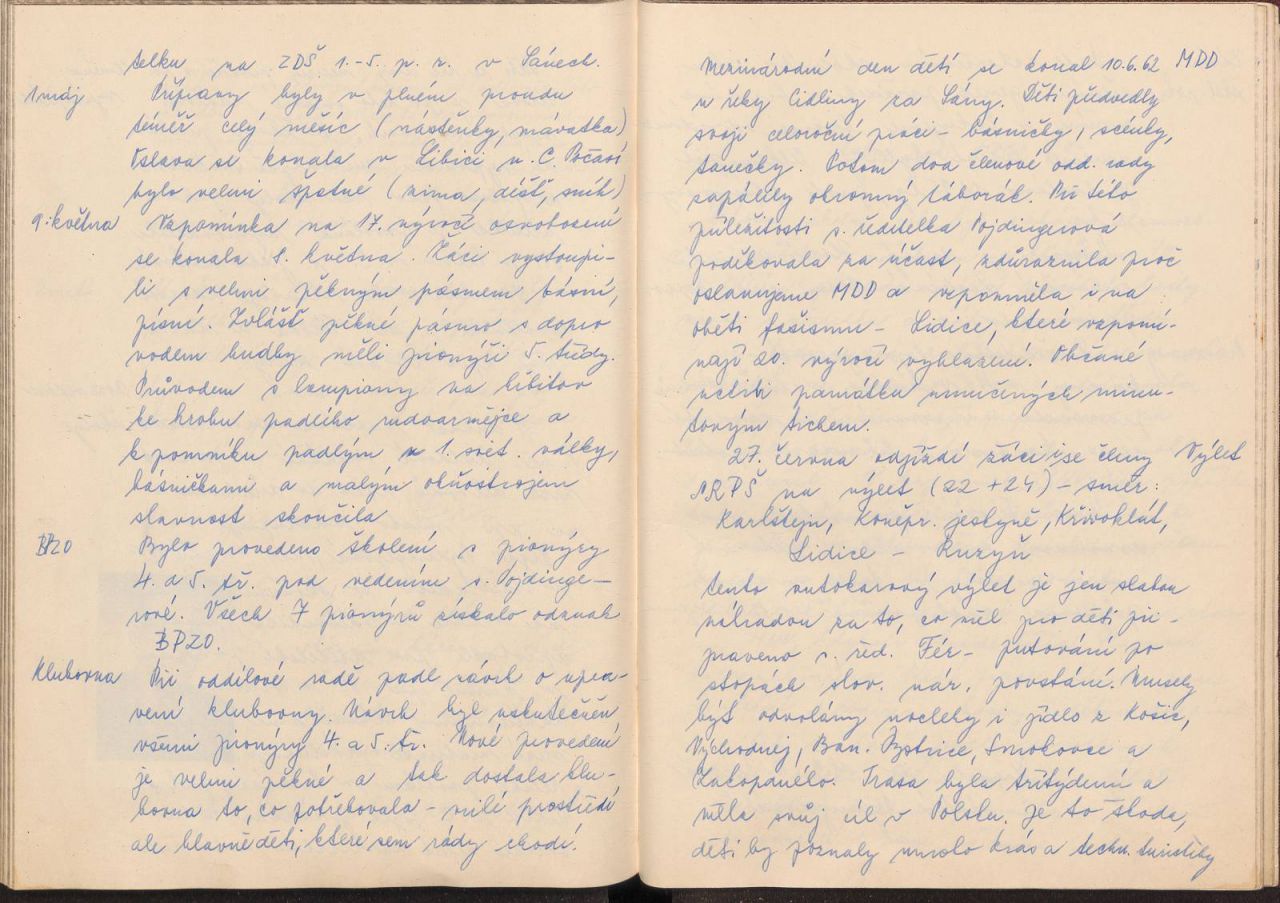 telku na ZDŠ 1.-5. p. r. v Sánech.
1 máj Přípravy byly v plném proudu
téměř celý měsíc (nástěnky, mávátka)
Oslava se konala v Libici n. C. Počasí
bylo velmi špatné (zima, déšť, sníh)
9. května Vzpomínka na 17. výročí osvobození
se konala 8. května. Žáci vystoupi-
li s velmi pěkným pásmem básní,
písní. Zvlášť pěkné pásmo s dopro
vodem hudby měli pionýři 5. třídy.
Průvodem s lampiony na hřbitov
ke hrobu padlého rudoarmějce a
k pomníku padlým v 1. svět. války,
básničkami a malým ohňostrojem
slavnost skončila
BPZO Bylo provedeno školení s pionýry
4. a 5. tř. pod vedením s. Pojdinge-
rové. Všech 7 pionýrů získalo odznak
BPZO.
Klubovna Při oddílové radě padl návrh o upra-
vení klubovny. Návrh byl uskutečněn
všemi pionýry 4. a 5. tř. Nové provedení
je velmi pěkné a tak dostala klu-
bovna to, co potřebovala - milé prostředí
ale hlavně děti, které sem rády chodí.
Mezinárodní den dětí se konal 10.6.62 MDD
u řeky Cidliny za Sány. Děti předvedly
svoji celoroční práci - básničky, scénky,
tanečky. Potom dva členové odd. rady
zapálily ohromný táborák. Při této
příležitosti s. ředitelka Pojdingerová
poděkovala za účast, zdůraznila proč
oslavujeme MDD a vzpomněla i na
oběti fašismu - Lidice, které vzpomí-
nají 20. výročí vyhlazení. Občané
uctili památku umučených minu-
tovým tichem.
27. června odjíždí žáci i se členy Výlet
SRPŠ na výlet (22 + 24) - směr:
Karlštejn, Koněpr. jeskyně, Křivoklát,
Lidice - Ruzyň
tento autokarový výlet je jen slabou
náhradou za to, co měl pro děti při-
praveno s. řed. Fér - putování po
stopách slov. nár. povstání. Musely
být odvolány noclehy i jídlo z Košic,
Východnej, Ban. Bystrice, Smokovce a
Zakopaného. Trasa byla třítýdenní a
měla svůj cíl v Polsku. Je to škoda,
děti by poznaly mnoho krás a techn. turistiky